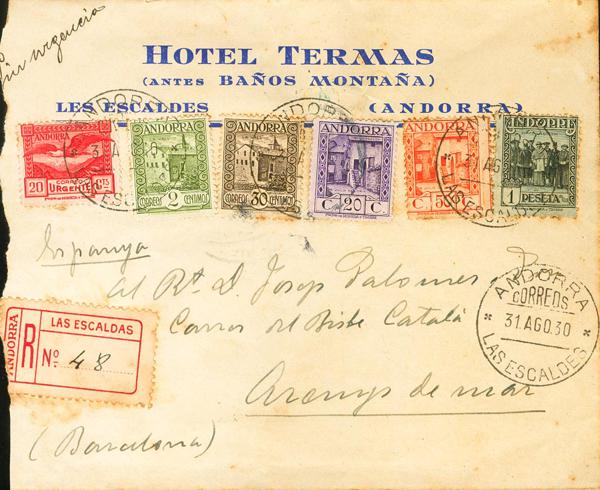 urgencia
HOTEL TERMAS
(ANTES BAÑOS MONTAÑA)
LES ESCALDES (ANDORRA)
ANDORRA
20 CORREO CTS
URGENTE
ANDORRA
CORREOS 2 CENTIMOS
ANDORRA
CORREOS 30 CENTIMOS
ANDORRA
C 20 C
ANDORRA
C 50
ANDORRA
1 PESETA
Espanya
al Rt. D. Josep Palomer
Carrer del Bisbe Català
Arenys de mar
(Barcelona)
ANDORRA
R
LAS ESCALDAS
Nº 48
ANDORRA
CORREOS
* 31 AGO.30 *
LAS ESCALDES